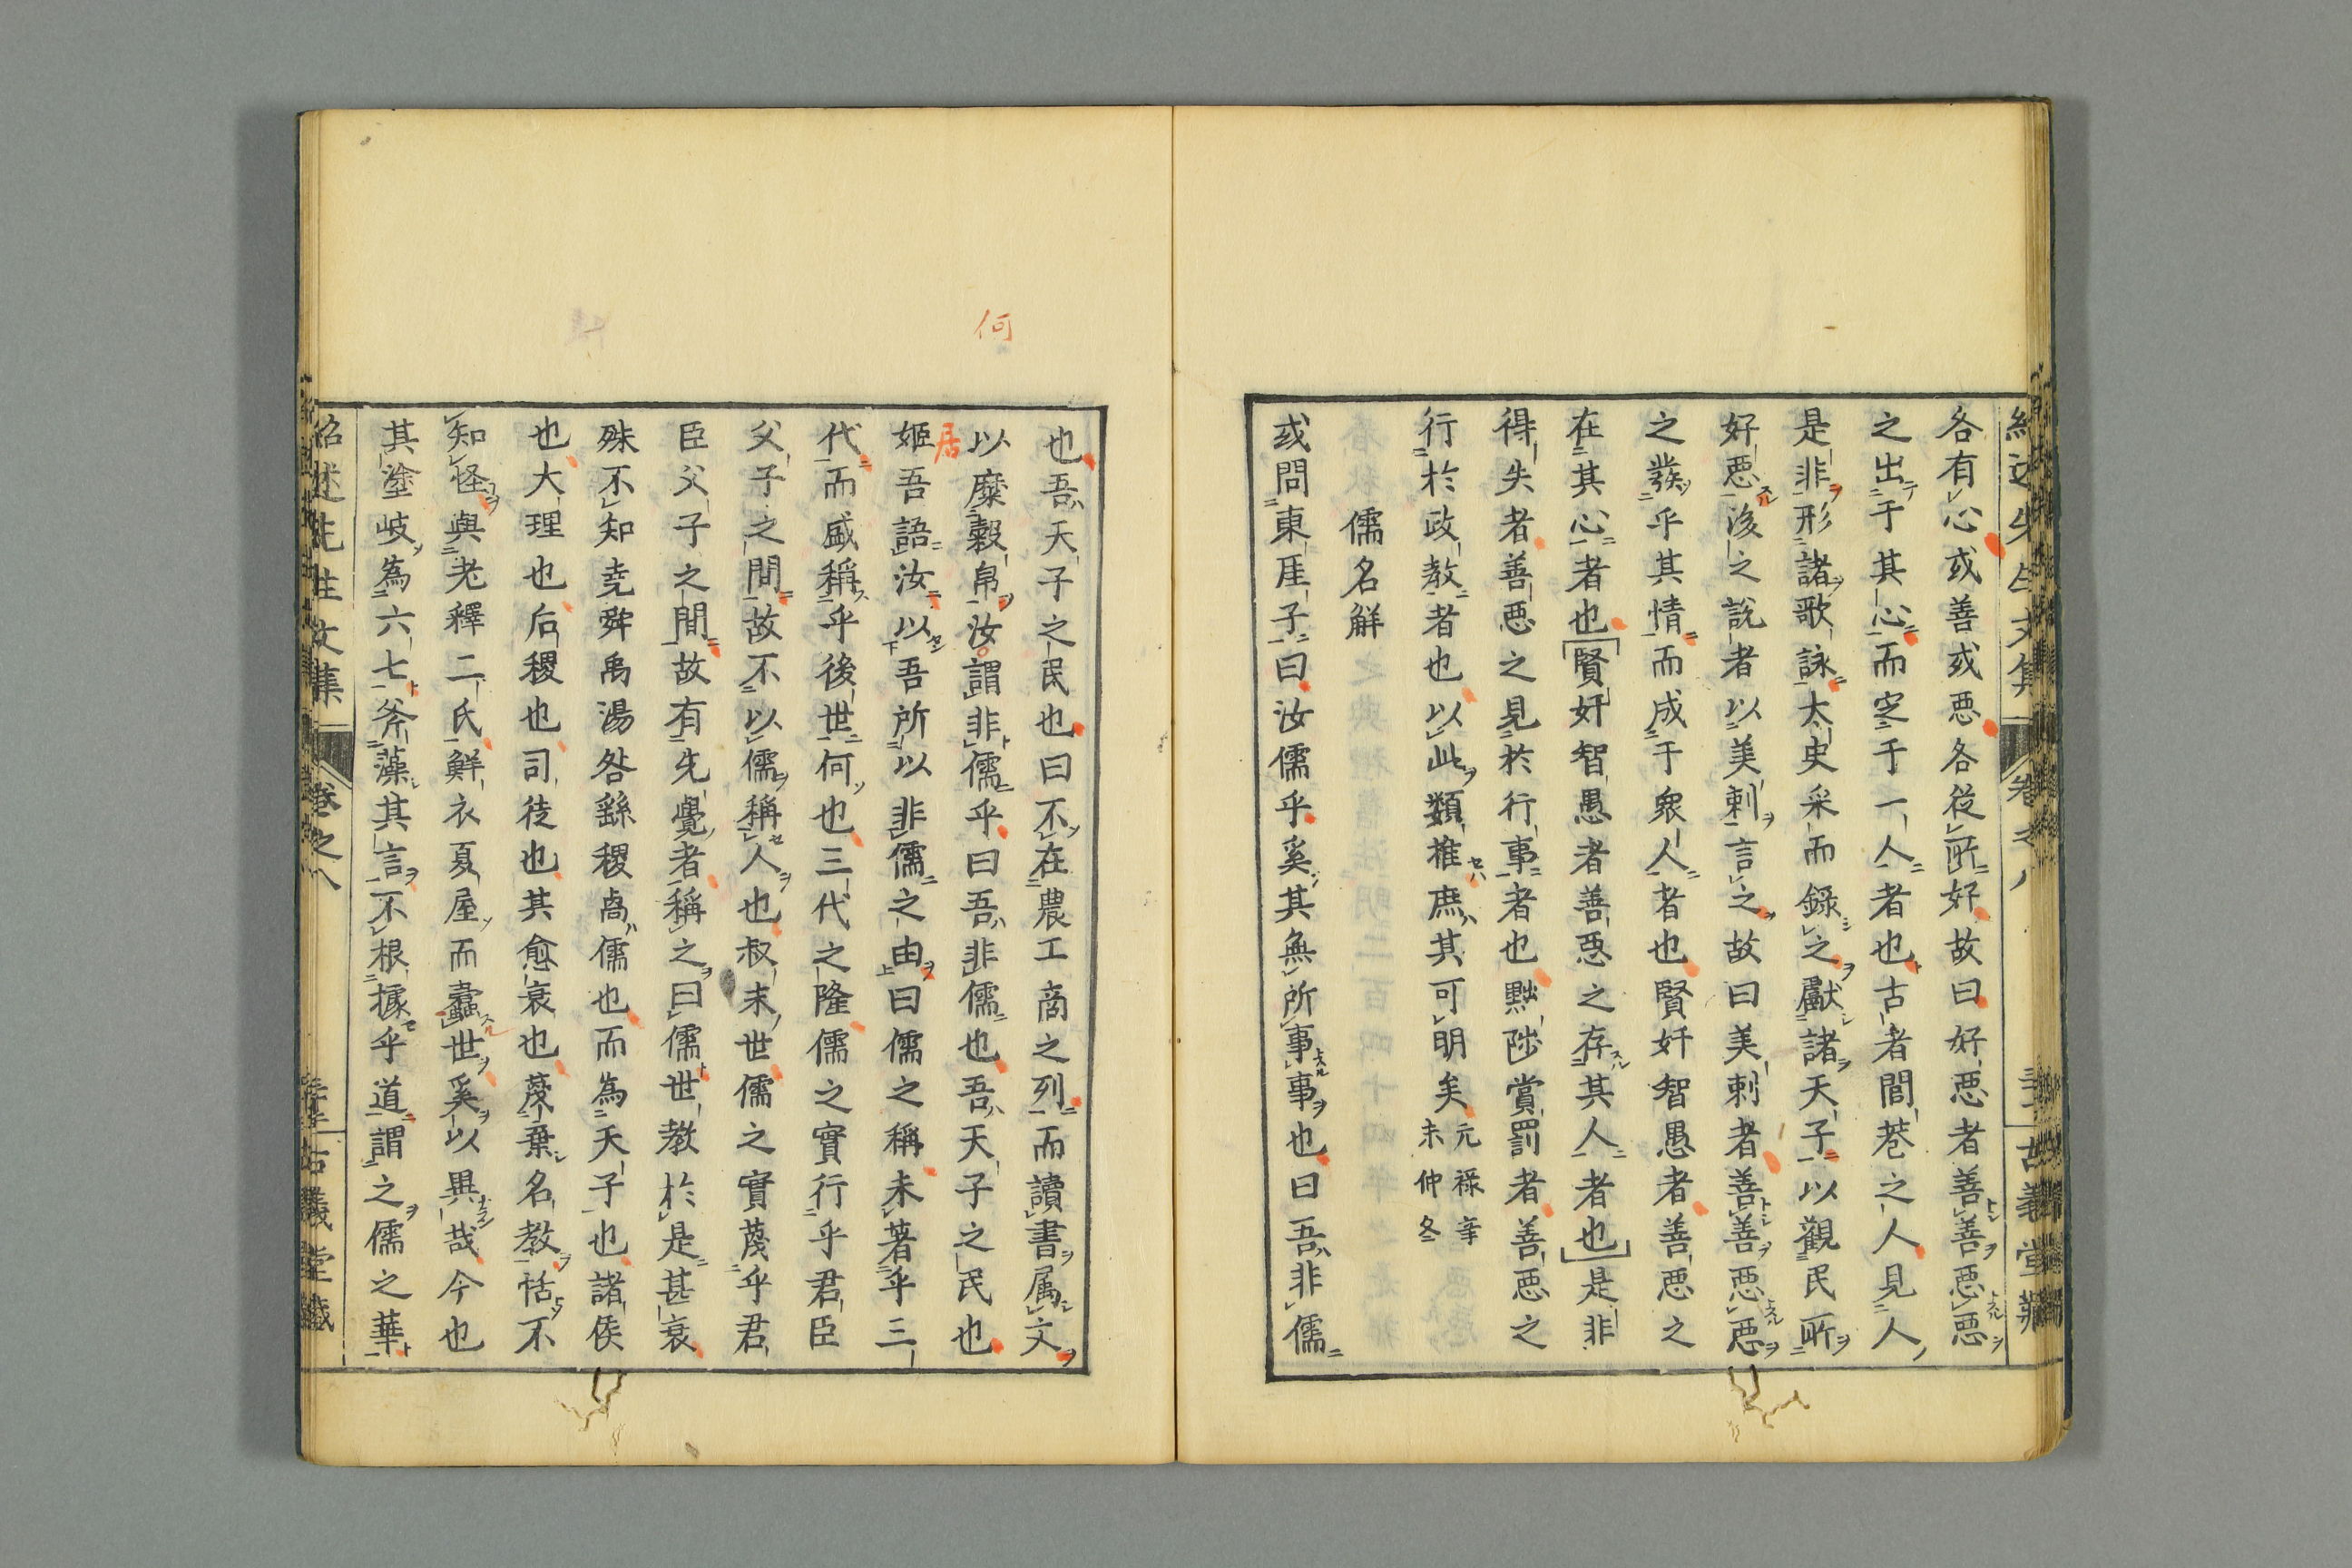 各有心或善或悪各從所好故曰好悪者善善悪悪
之出于其心而定于一人者也古者閭巷之人見人
是非形諸歌詠太史采而錄之獻諸天子以觀民所
好悪後之說者以美刺言之故曰美刺者善善悪悪
之發乎其情而成于衆人者也賢奸智愚者善悪之
在其心者也賢奸智愚者善悪之存其人者也是非
得失者善悪之見於行事者也黜陟賞罰者善悪之
行於政教者也以此類推庶其可明矣元禄辛
未仲冬
儒名解
或問東厓子曰汝儒乎奚其無所事事也曰吾非儒
何
也吾天子之民也曰不在農工商之列而讀書属文
以糜穀帛汝謂非儒乎曰吾非儒也吾天子之民也
居
姬吾語汝以吾所以非儒之由曰儒之稱未著乎三
代而盛稱乎後世何也三代之隆儒之實行乎君臣
父子之間故不以儒稱人也叔末世儒之實蔑乎君
臣父子之間故有先覺者稱之曰儒世教於是甚衰
殊不知堯舜禹湯咎繇稷卨儒也而為天子也諸侯
也大理也后稷也司徒也其愈衰也蔑棄名教恬不
知怪與老釋二氏鮮衣夏屋而蠹世奚以異哉今也
其塗岐為六七斧藻其言不根據乎道謂之儒之華
紹述先生文集 卷之八 古義堂藏